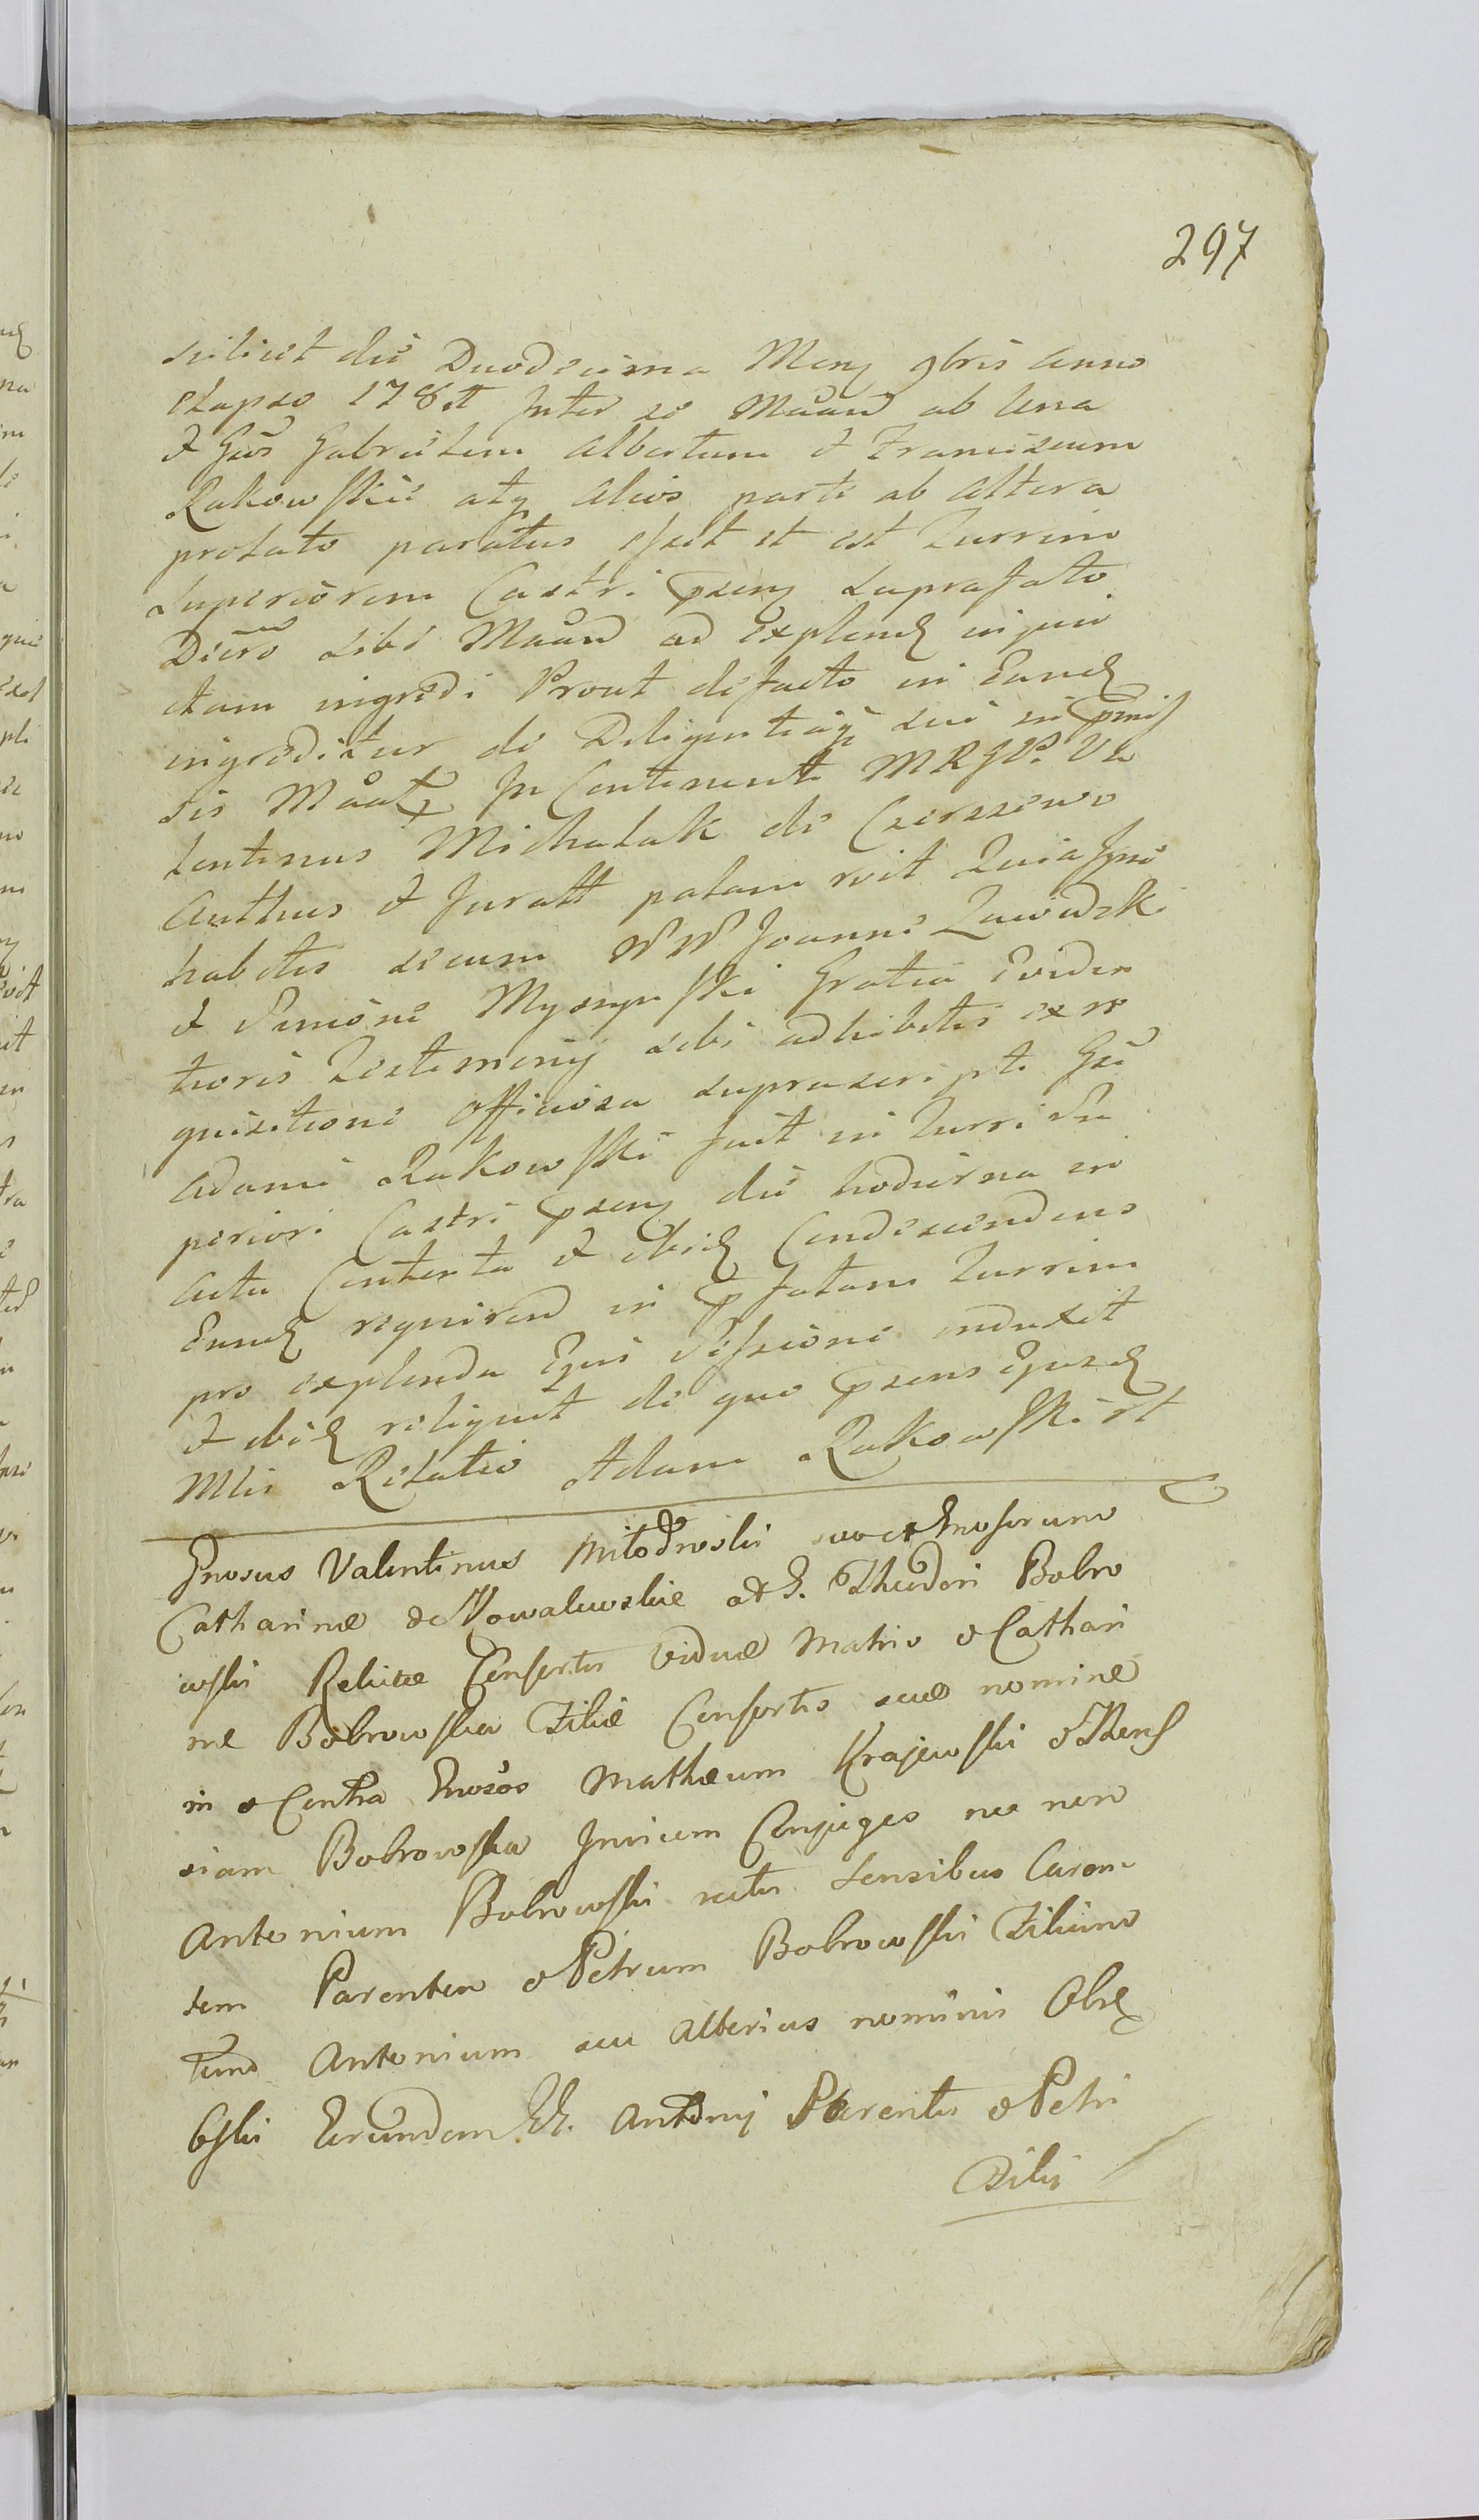 297
scilicet die Duodecima Mens 9bris anno
elapso 178 Inter se Maan ab una
et Gsos Gabrielem Albertum et Franciscum
Rakowskie atq alios parte ab altera
prolato paratus esset et est Turrim
Superiorem Castri psens suprafato
Decro sibi Maan ad explend injun
ctam ingredi Prout de facto in Eund
ingreditur de Diligentiaq sui in pmis
sis Maat In Continenti MRGP. Va
lentinus Michalak de Czerszewo
Authus et Juratt palam rvit Quia Ipse
habitis secum NN Joanne Zawadzki
et Simone Myszynski Gratia Eviden
tioris Testimonij sibi adhibitis ex re
quisitione Officiosa suprascripti Gsi
Adami Rakowski fuit in Turri Su
periori Castri psens die hodierna in
Actu Contenta et ibid Condescendens
Eund requirend in pfatam Turrim
pro explenda Ejus Sessione induxit
et ibid reliquit de quo psens Ejusd
Mlis Relatio Adam Rakowski
Gnosus Valentinus suo et Gnosarum
Catharinae de Kowalewskie et G. Theodori Bobro
wski Relictae Consortis Viduae Matris & Cathari
nae Bobrowska Filiae Consortis suae nomine
in & Contra Gnosos Mathaeum Krajewski &
siam Bobrowska Invicem Conjuges nec non
Antonium Bobrowski Sensibus Caren
tem Parentem & Petrum Bobrowski Filium
tum Antonium seu alterius nominis
Eorundem GG. Antonij Parentis & Petri
Filij